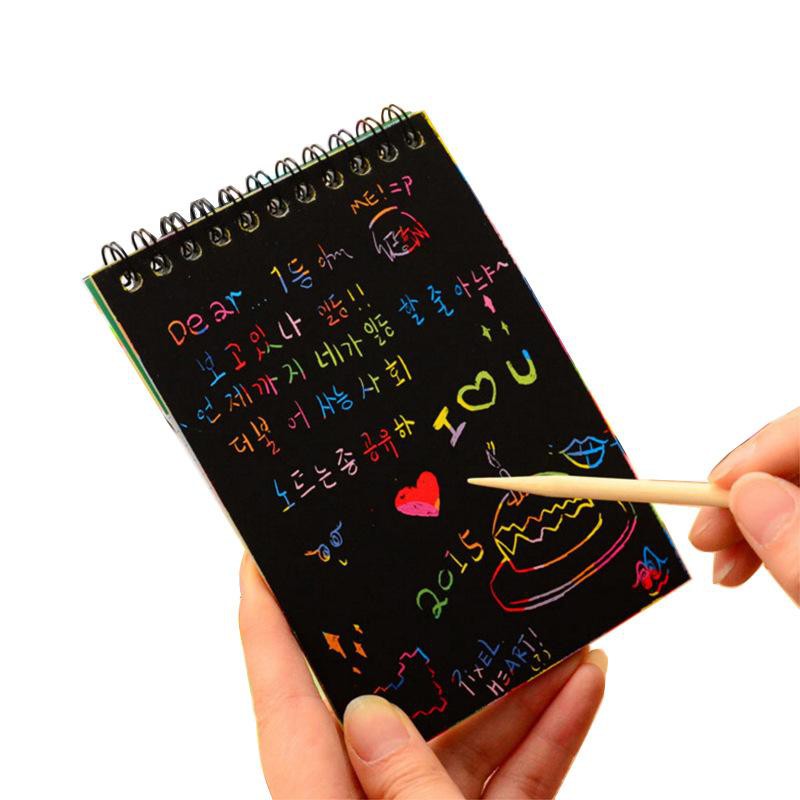 ME! =P
Dear... 1등
보고있나 일등!!
언제까지 네가 일등 할 줄 아냐~
더불어 사능 사회
노트는 좀 공유하
I ♡ U
2015
PIXEL
HEART!
(?)